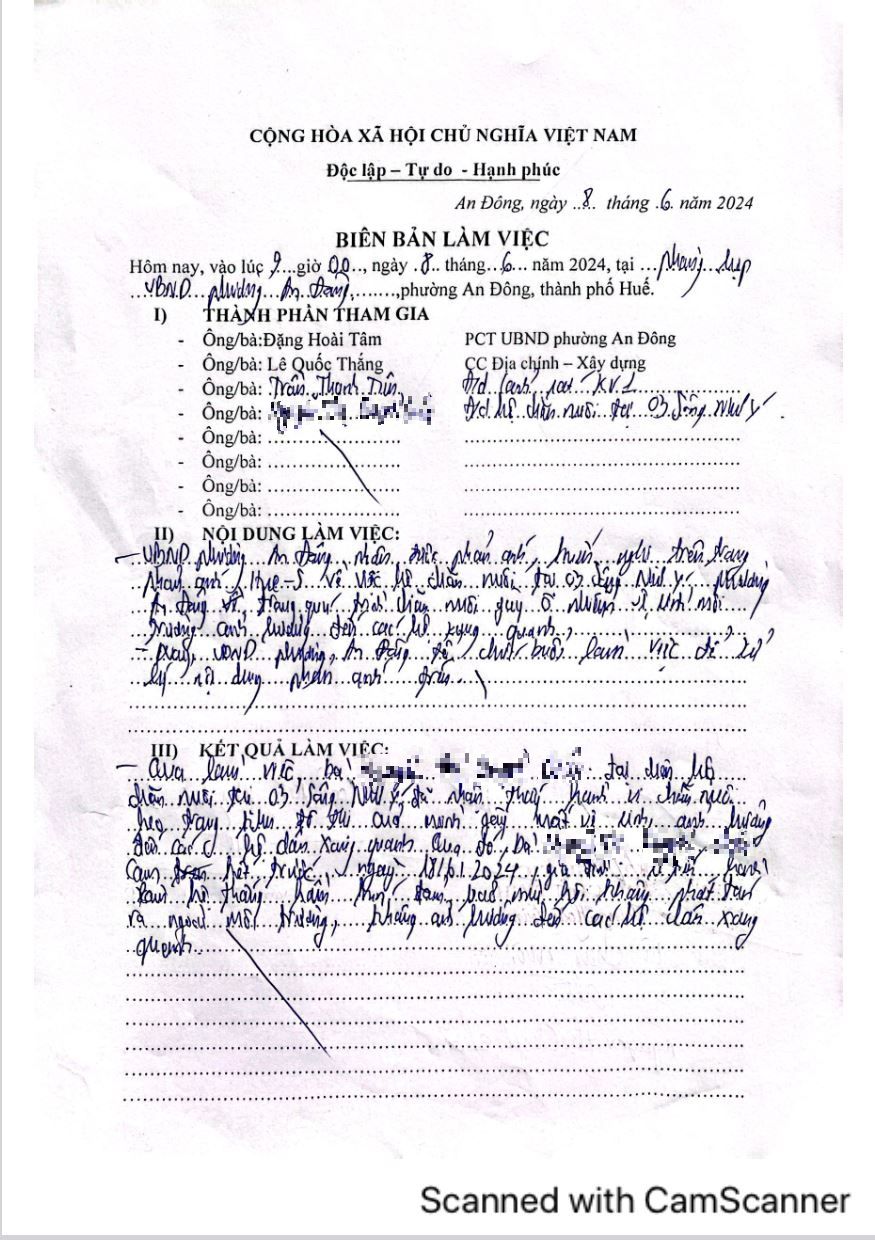 CỘNG HÒA XÃ HỘI CHỦ NGHĨA VIỆT NAM
Độc lập – Tự do - Hạnh phúc
An Đông, ngày ..8.. tháng .6. năm 2024
BIÊN BẢN LÀM VIỆC
Hôm nay, vào lúc 9...giờ 00..., ngày .8.. tháng...6... năm 2024, tại ...phòng...họp
...UBND...phường...An Đông,.......,phường An Đông, thành phố Huế.
I) THÀNH PHẦN THAM GIA
- Ông/bà:Đặng Hoài Tâm PCT UBND phường An Đông
- Ông/bà: Lê Quốc Thắng CC Địa chính – Xây dựng
- Ông/bà: Trần Thanh KV1
- Ông/bà: hộ chăn nuôi tại 03 Sông Như Ý
- Ông/bà: ............................
- Ông/bà: ............................
- Ông/bà: ............................
- Ông/bà: ............................
II) NỘI DUNG LÀM VIỆC:
- UBND phường An Đông nhận được phản ánh, kiến nghị trên trang
phản ánh Hue-S về việc hộ chăn nuôi tại 03 Sông Như Ý, phường
An Đông về trong quá trình chăn nuôi gây ô nhiễm vệ sinh môi
trường ảnh hưởng đến các hộ xung quanh,
- UBND phường An Đông tổ chức buổi làm việc để xử
lý nội dung phản ánh trên.
III) KẾT QUẢ LÀM VIỆC:
- Qua làm việc, bà đại diện hộ
chăn nuôi tại 03 Sông Như Ý đã nhận thấy hành vi chăn nuôi
heo trong đô thị của mình gây mất vệ sinh, ảnh hưởng
đến các hộ dân xung quanh. Qua đó, bà
cam kết trước ngày 18/6/2024, gia đình sẽ tiến hành
làm hệ thống hầm đảm bảo mùi hôi không phát tán
ra ngoài môi trường, không ảnh hưởng đến các hộ dân xung
quanh.
Scanned with CamScanner